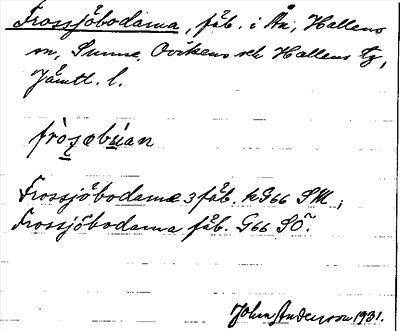 Frossjöbodarna, fäb. i Ån, Hallens
sn, Sunne, Ovikens och Hallens tg,
Jämtl. l.
fròs̱əbu̱an
Frossjöbodarna 3 fäb. kG66 SM;
Frossjöbodarna fäb. G66 SÖ.
John Anderson 1931.